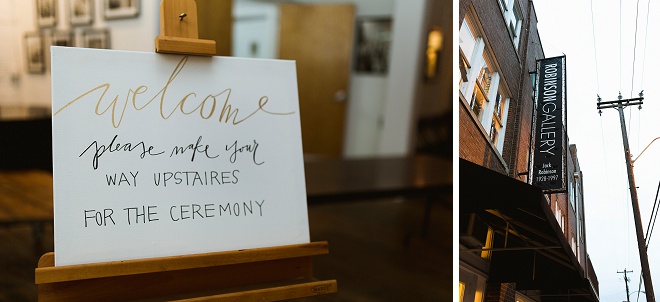 welcome
please make your
WAY UPSTAIRES
FOR THE CEREMONY
ROBINSON GALLERY
Jack
Robinson
1928-1997